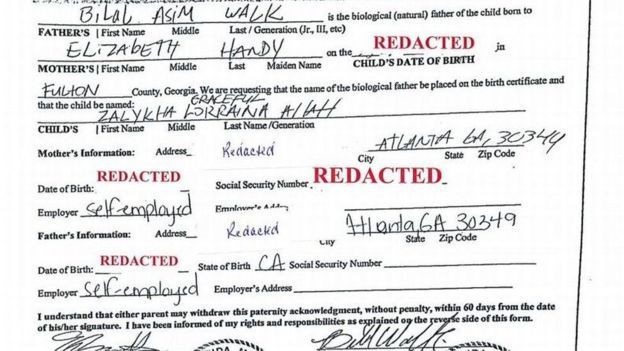 BILAL ASIM WALK is the biological (natural) father of the child born to
FATHER'S | First Name Middle Last / Generation (Jr., III, etc)
ELIZABETH HANDY on the REDACTED in
MOTHER'S | First Name Middle Last Maiden Name CHILD'S DATE OF BIRTH
FULTON County, Georgia. We are requesting that the name of the biological father be placed on the birth certificate and
that the child be named: GRACEFUL
ZALYKHA LORRAINA Allah
CHILD'S | First Name Middle Last Name/Generation
ATLANTA GA, 30349
Mother's Information: Address Redacted City State Zip Code
Date of Birth: REDACTED Social Security Number REDACTED
Employer self-employed Employer's
Atlanta, GA 30349
Father's Information: Address Redacted City State Zip Code
Date of Birth: REDACTED State of Birth CA Social Security Number
Employer self-employed Employer's Address
I understand that either parent may withdraw this paternity acknowledgment, without penalty, within 60 days from the date
of his/her signature. I have been informed of my rights and responsibilities as explained on the reverse side of this form.